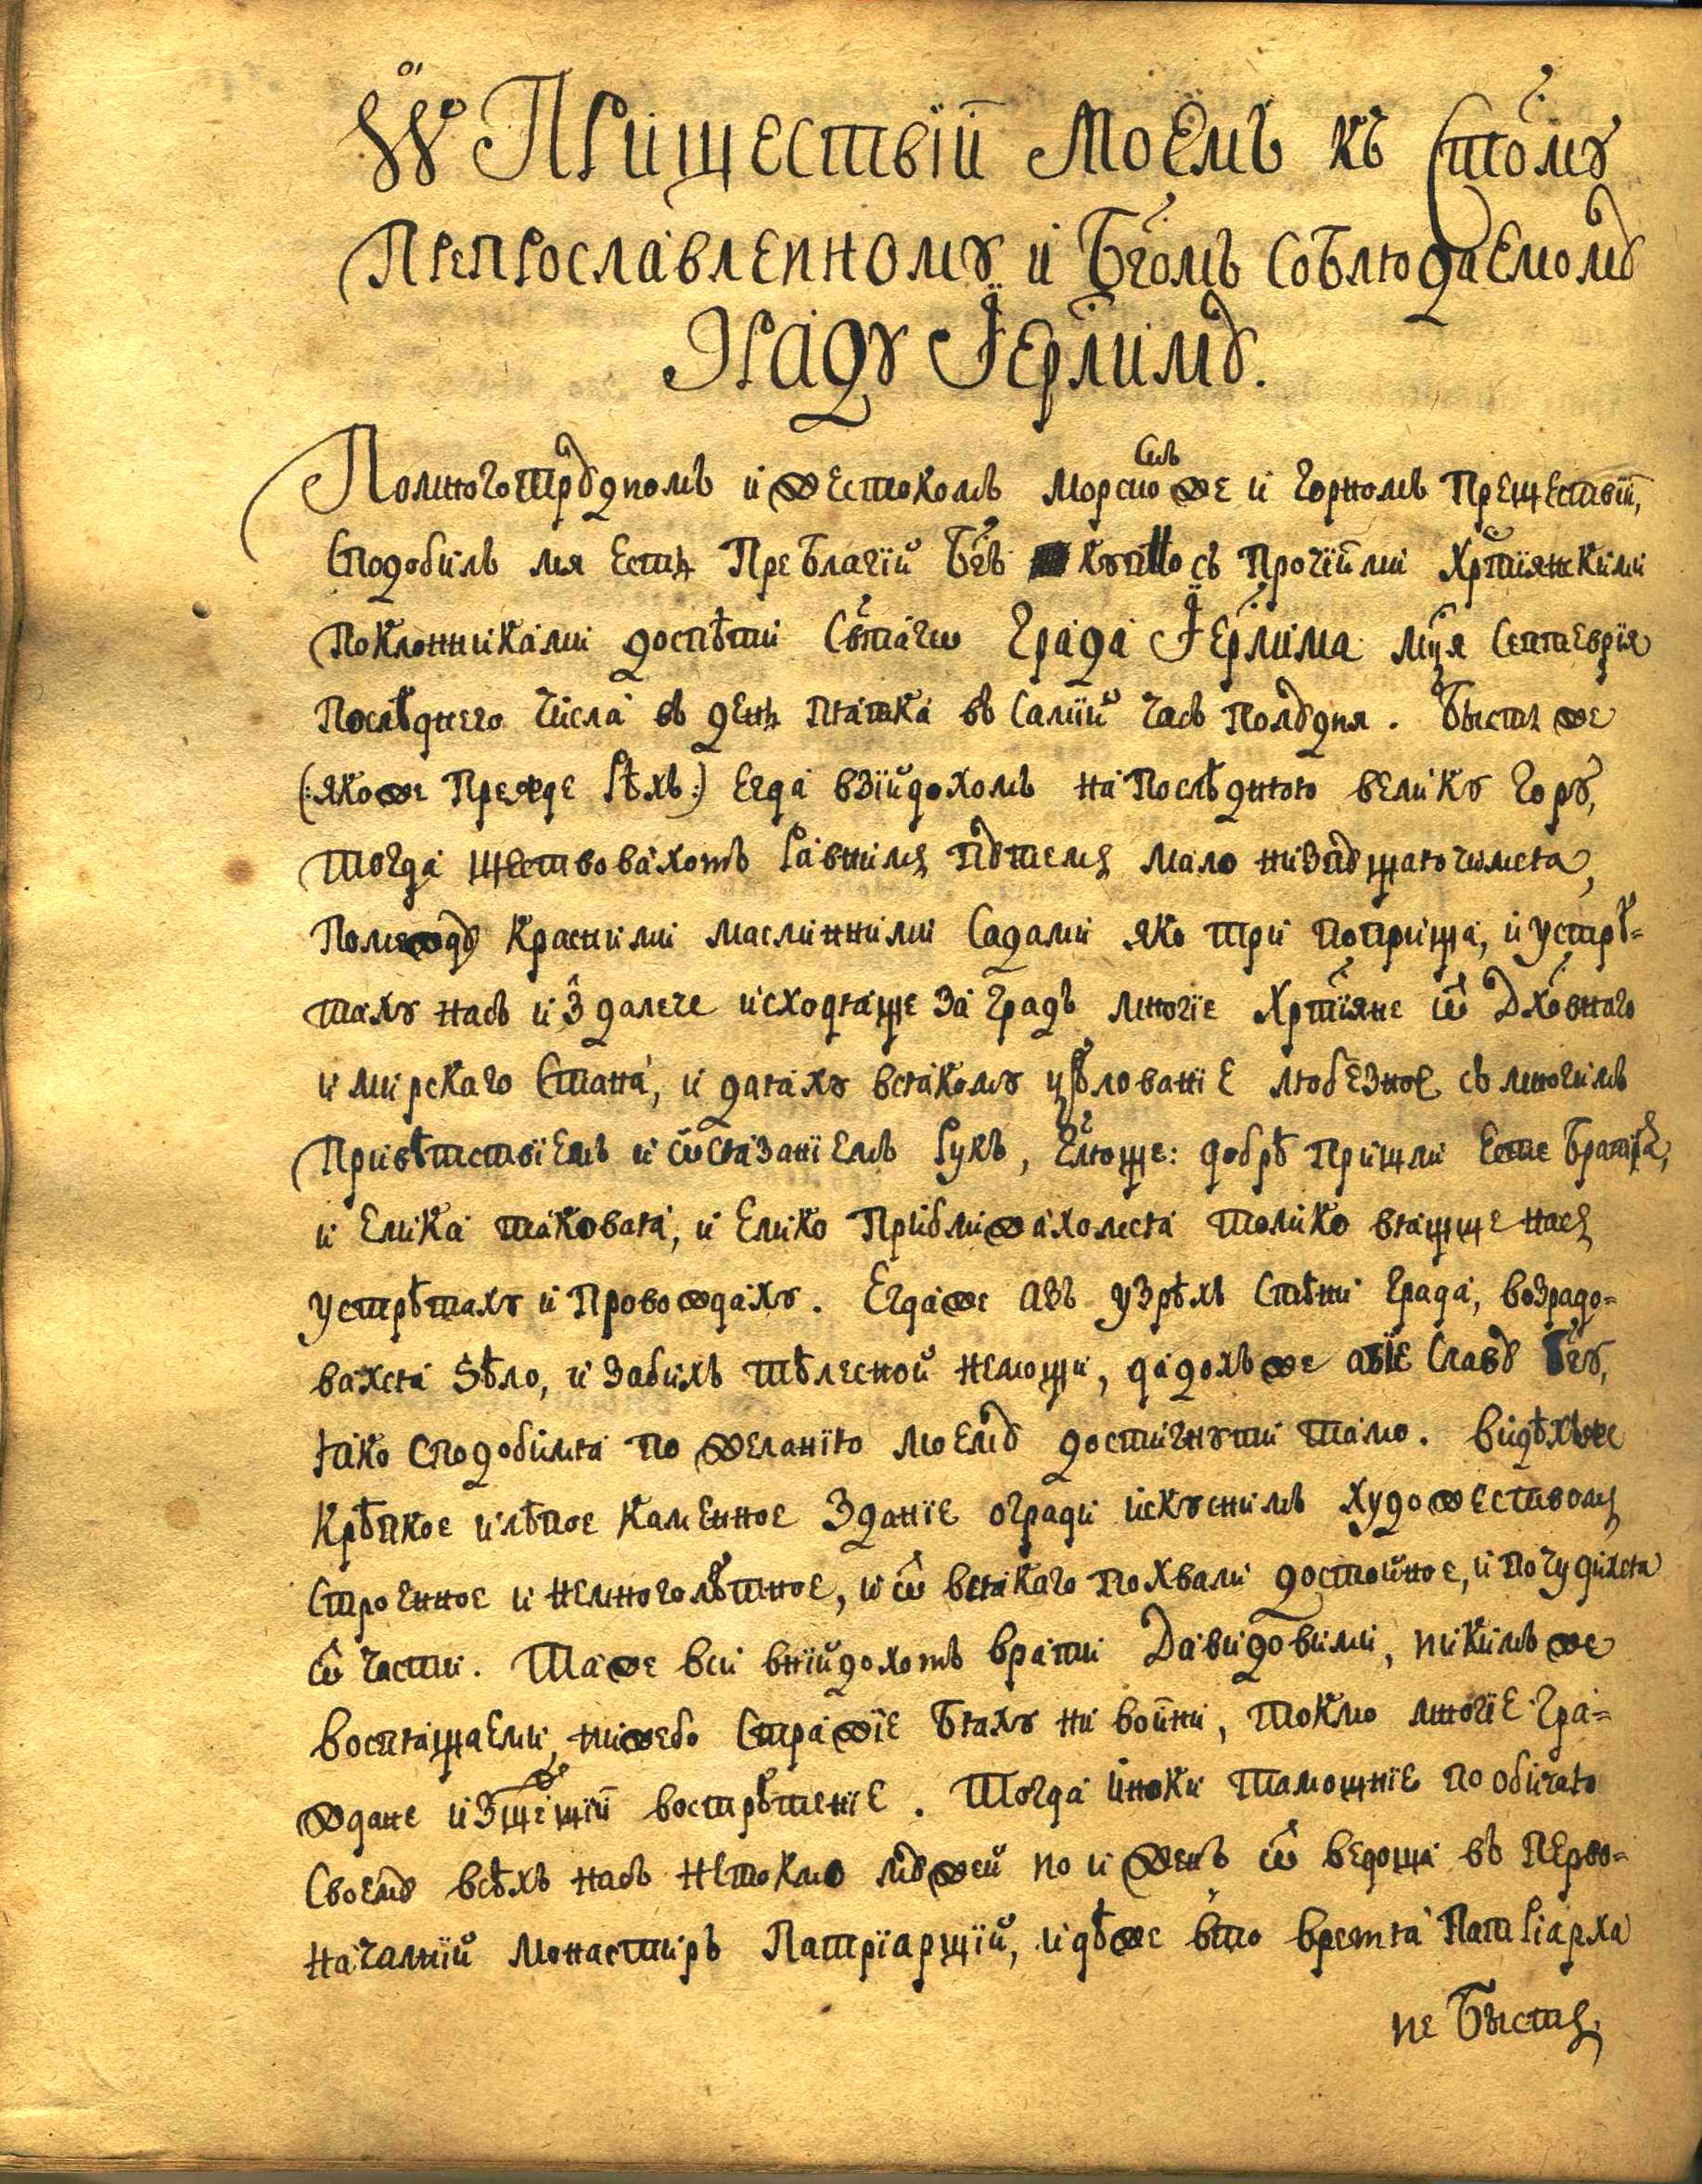 Ѡ Пришествїи моемъ къ Стому
Препрославленному и Бгомъ соблюдаемому
Граду Іерлиму.
По многотрудномъ и жестокомъ морскомъ же и горномъ прешествїи,
сподобилъ мя есть Преблагїй Бгъ купно съ прочіими Хртіянскими
поклонниками доспѣти Свтагѡ града Іерлима мця Септеврїя
послѣднего числа въ день пятка въ самїй часъ полудня. Бысть же
(: якоже прежде рѣхъ :) егда взійдохомъ на послѣднюю велику гору,
тогда шествовахомъ равнимъ путемъ мало низпущающимся,
помежду красними маслинними садами яко три поприща, и устрѣ=
таху насъ издалече исходяще за градъ многіе Хртіяне ѿ Дховнаго
и мирскаго стана, и даяху всякому цѣлованіе любезное съ многимъ
привѣтствіемъ и осязаніемъ рукъ, глюще: добрѣ пришли есте братіа,
и елика таковая, и елико приближахомся толико вящше насъ
устрѣтаху и провождаху. Егдаже азъ узрѣхъ стѣни града, возрадо=
вахся ѕѣло, и забихъ тѣлесной немощи, дадохъ же абїе славу Бгу,
яко сподобимя по желанїю моему достигнути тамо. Видѣхъ же
крѣпкое и лѣпое каменное зданїе огради искуснимъ художествомъ
строенное и немноголѣтное, и ѿ всякаго похвали достойное, и почудихся
ѿ части. Таже вси внійдохомъ врати Давидовими, никимъ же
воспящаеми, нижебо стражїе бяху ни воини, токмо многіе гра=
ждане изшедшїи вострѣтенїе. Тогда иноки тамошнїе по обичаю
своему всѣхъ насъ нетокмо мужей но и женъ ѿведоша въ перво=
началній монастиръ Патрїаршїй, идѣже вто время Патріарха
не бысть,